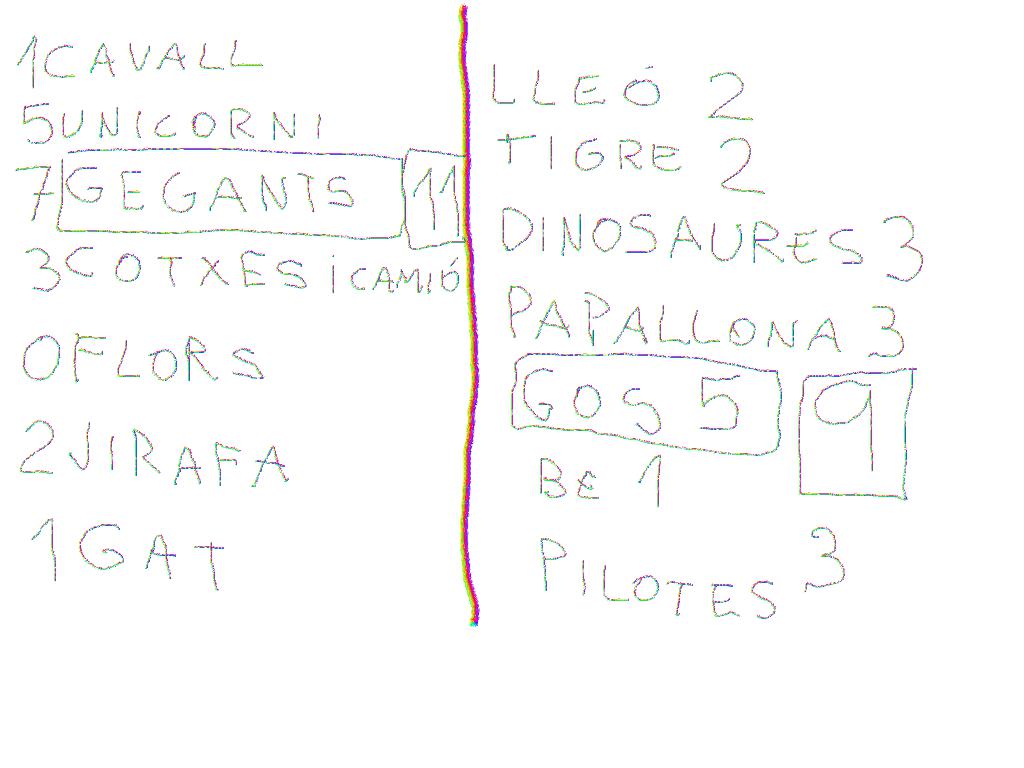 1 CAVALL
5 UNICORNI
7 GEGANTS 11
3 COTXES i CAMIÓ
0 FLORS
2 JIRAFA
1 GAT
LLEÓ 2
TIGRE 2
DINOSAURES 3
PAPALLONA 3
GOS 5 9
BE 1
PILOTES 3